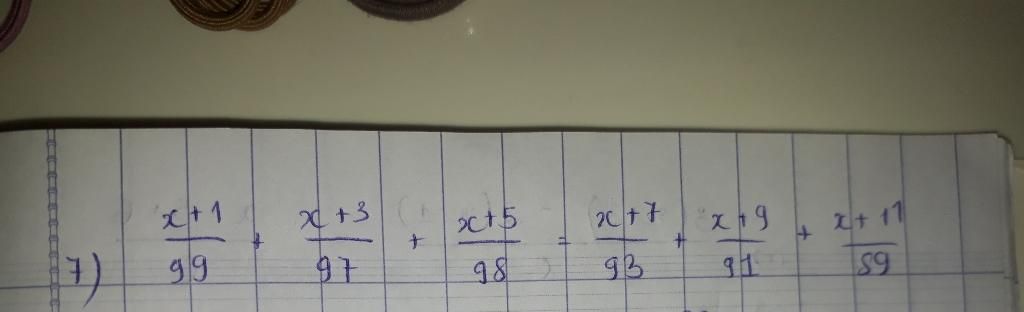 7) x+1/99 + x+3/97 + x+5/98 = x+7/93 + x+9/91 + x+11/89